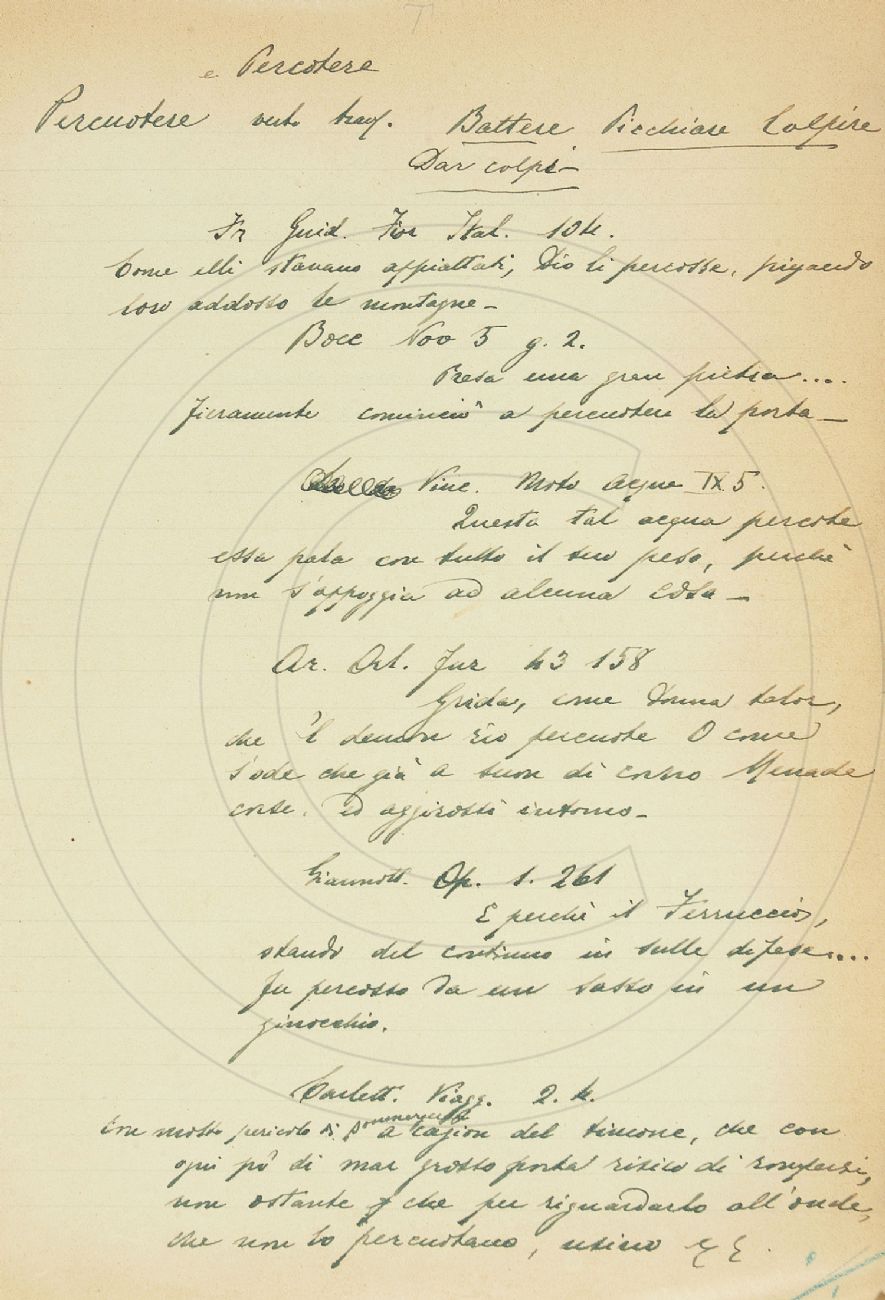 e Percotere
Percuotere verbo trans. Battere Picchiare Colpire
Dar colpi —
Fr Guid. Fior Ital. 104.
Come elli stavano appiattati, Dio li percosse, pignendo
loro addosso le montagne —
Bocc Nov 5 g. 2.
Presa una gran pietra....
fieramente cominciò a percuotere la porta —
Vinc. Moto acque IX. 5.
Questa tal acqua percote
essa pala con tutto il suo peso, perchè
non s'appoggia ad alcuna cosa —
Ar. Orl. fur 43 158
Grida, come donna talor,
che 'l demon rio percuote O come
s'ode che già a suon di corno Menade
corse. ed aggirossi intorno —
Giannott. Op. 1. 261
E perchè il Ferruccio,
stando del continuo in sulle difese....
fu percosso da un sasso in un
ginocchio.
Carlett. Viagg. 2. 4.
Con molto pericolo di a cagion del timone, che con
ogni pò di mar grosso porta risico di rompersi,
non ostante che per riguardarlo all'onde,
che non lo percuotano, usino